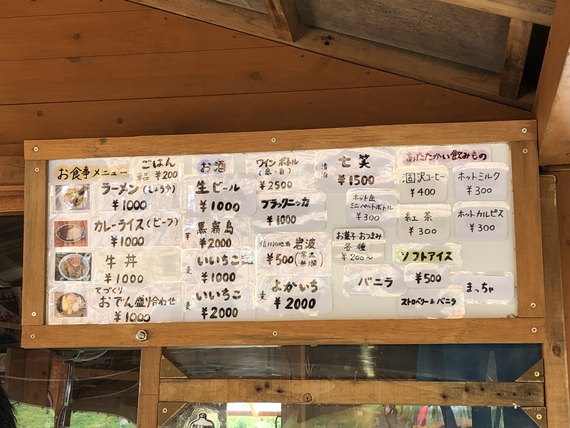 お食事メニュー
ごはん
¥200
ラーメン(しょうゆ)
¥1000
カレーライス(ビーフ)
¥1000
牛丼
¥1000
てづくり
おでん盛り合わせ
¥1000
お酒
生ビール
¥1000
黒霧島
¥2000
いいちこ
¥1000
麦
いいちこ
¥2000
ワインボトル
(赤・白)
¥2500
ブラックニッカ
¥1000
岩波
¥500
麦
よかいち
¥2000
七笑
¥1500
ホットお茶
ミニペットボトル
¥300
お菓子おつまみ
各種
¥200~
あたたかい飲みもの
涸沢コーヒー
¥400
ホットミルク
¥300
紅茶
¥300
ホットカルピス
¥300
ソフトアイス
¥500
バニラ
まっちゃ
ストロベリー&バニラ